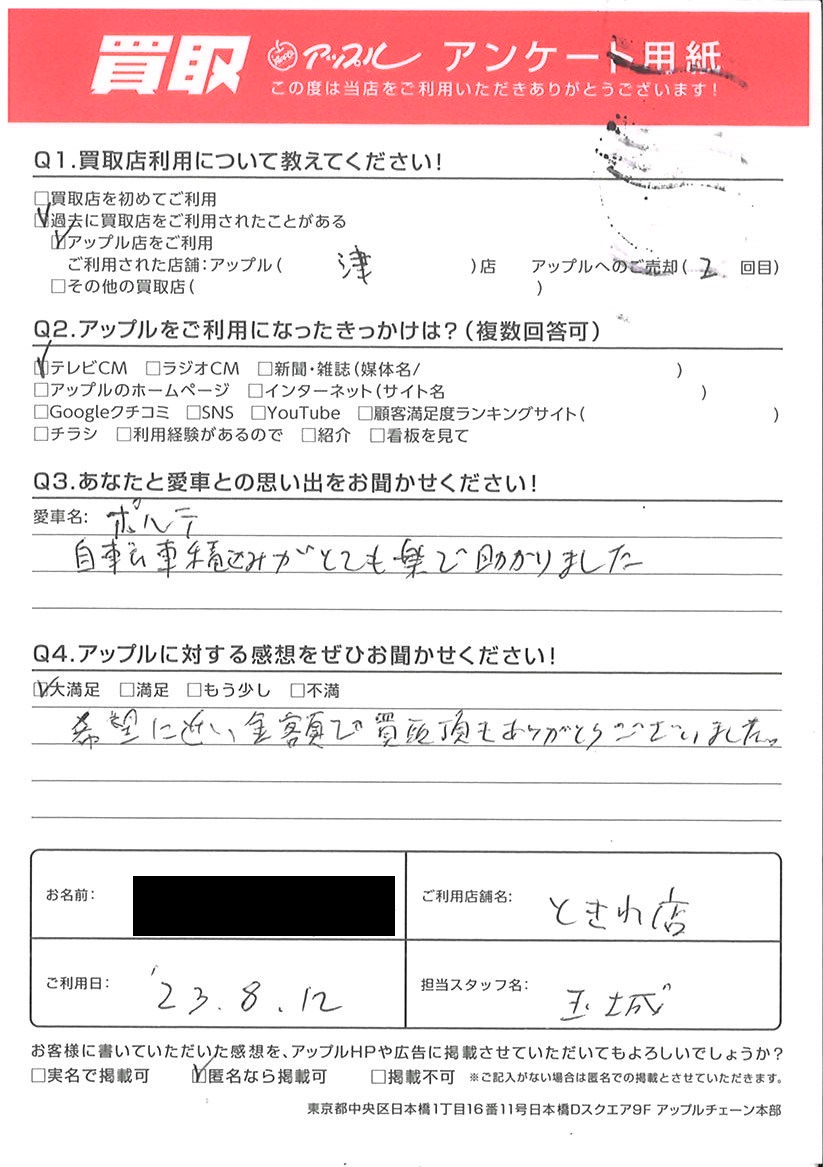 買取 アップル アンケート用紙
この度は当店をご利用いただきありがとうございます！
Q1.買取店利用について教えてください！
□買取店を初めてご利用
☑過去に買取店をご利用されたことがある
☑アップル店をご利用
ご利用された店舗：アップル（ 津 ）店 アップルへのご売却（ 2 回目）
□その他の買取店（ ）
Q2.アップルをご利用になったきっかけは？（複数回答可）
☑テレビCM □ラジオCM □新聞・雑誌（媒体名/ ）
□アップルのホームページ □インターネット（サイト名 ）
□Googleクチコミ □SNS □YouTube □顧客満足度ランキングサイト（ ）
□チラシ □利用経験があるので □紹介 □看板を見て
Q3.あなたと愛車との思い出をお聞かせください！
愛車名： ポルテ
自転車積込みがとても楽で助かりました
Q4.アップルに対する感想をぜひお聞かせください！
☑大満足 □満足 □もう少し □不満
希望に近い金額で買取頂きありがとうございました。
お名前：
ご利用店舗名： ときわ店
ご利用日： '23.8.12
担当スタッフ名： 玉城
お客様に書いていただいた感想を、アップルHPや広告に掲載させていただいてもよろしいでしょうか？
□実名で掲載可 ☑匿名なら掲載可 □掲載不可 ※ご記入がない場合は匿名での掲載とさせていただきます。
東京都中央区日本橋1丁目16番11号日本橋Dスクエア9F アップルチェーン本部